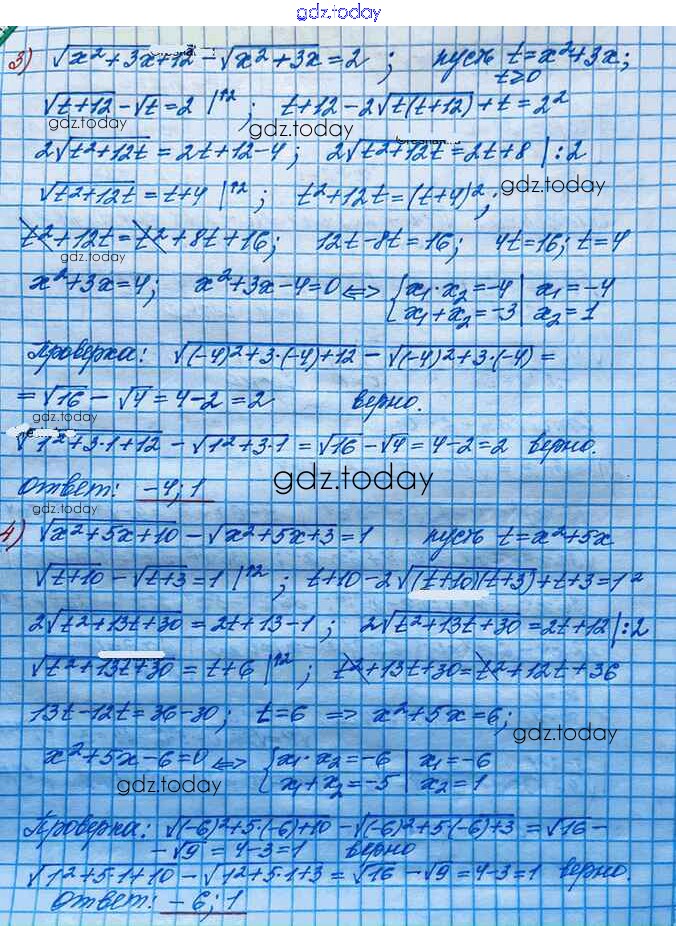 gdz.today
3) √(x²+3x+12) − √(x²+3x) = 2 ; пусть t=x²+3x;
t≥0
√(t+12) − √t = 2 |↑2 ; t+12−2√(t(t+12))+t=2²
gdz.today gdz.today
2√(t²+12t) = 2t+12−4 ; 2√(t²+12t) = 2t+8 |:2
√(t²+12t) = t+4 |↑2 ; t²+12t=(t+4)²;
gdz.today
t²+12t=t²+8t+16; 12t−8t=16; 4t=16; t=4
x²+3x=4; x²+3x−4=0 ⇔ { x₁·x₂=−4 | x₁=−4
x₁+x₂=−3 | x₂=1
Проверка: √((−4)²+3·(−4)+12) − √((−4)²+3·(−4)) =
= √16 − √4 = 4−2 = 2 верно.
gdz.today
√(1²+3·1+12) − √(1²+3·1) = √16 − √4 = 4−2=2 верно.
Ответ: −4; 1
gdz.today
gdz.today
4) √(x²+5x+10) − √(x²+5x+3) = 1 пусть t=x²+5x
√(t+10) − √(t+3) = 1 |↑2 ; t+10−2√((t+10)(t+3))+t+3=1²
2√(t²+13t+30) = 2t+13−1 ; 2√(t²+13t+30) = 2t+12 |:2
√(t²+13t+30) = t+6 |↑2 ; t²+13t+30=t²+12t+36
13t−12t=36−30; t=6 ⇒ x²+5x=6;
gdz.today
x²+5x−6=0 ⇔ { x₁·x₂=−6 | x₁=−6
x₁+x₂=−5 | x₂=1
gdz.today
Проверка: √((−6)²+5·(−6)+10) − √((−6)²+5·(−6)+3) = √16 −
− √9 = 4−3=1 верно
√(1²+5·1+10) − √(1²+5·1+3) = √16 − √9 = 4−3=1 верно.
Ответ: −6; 1